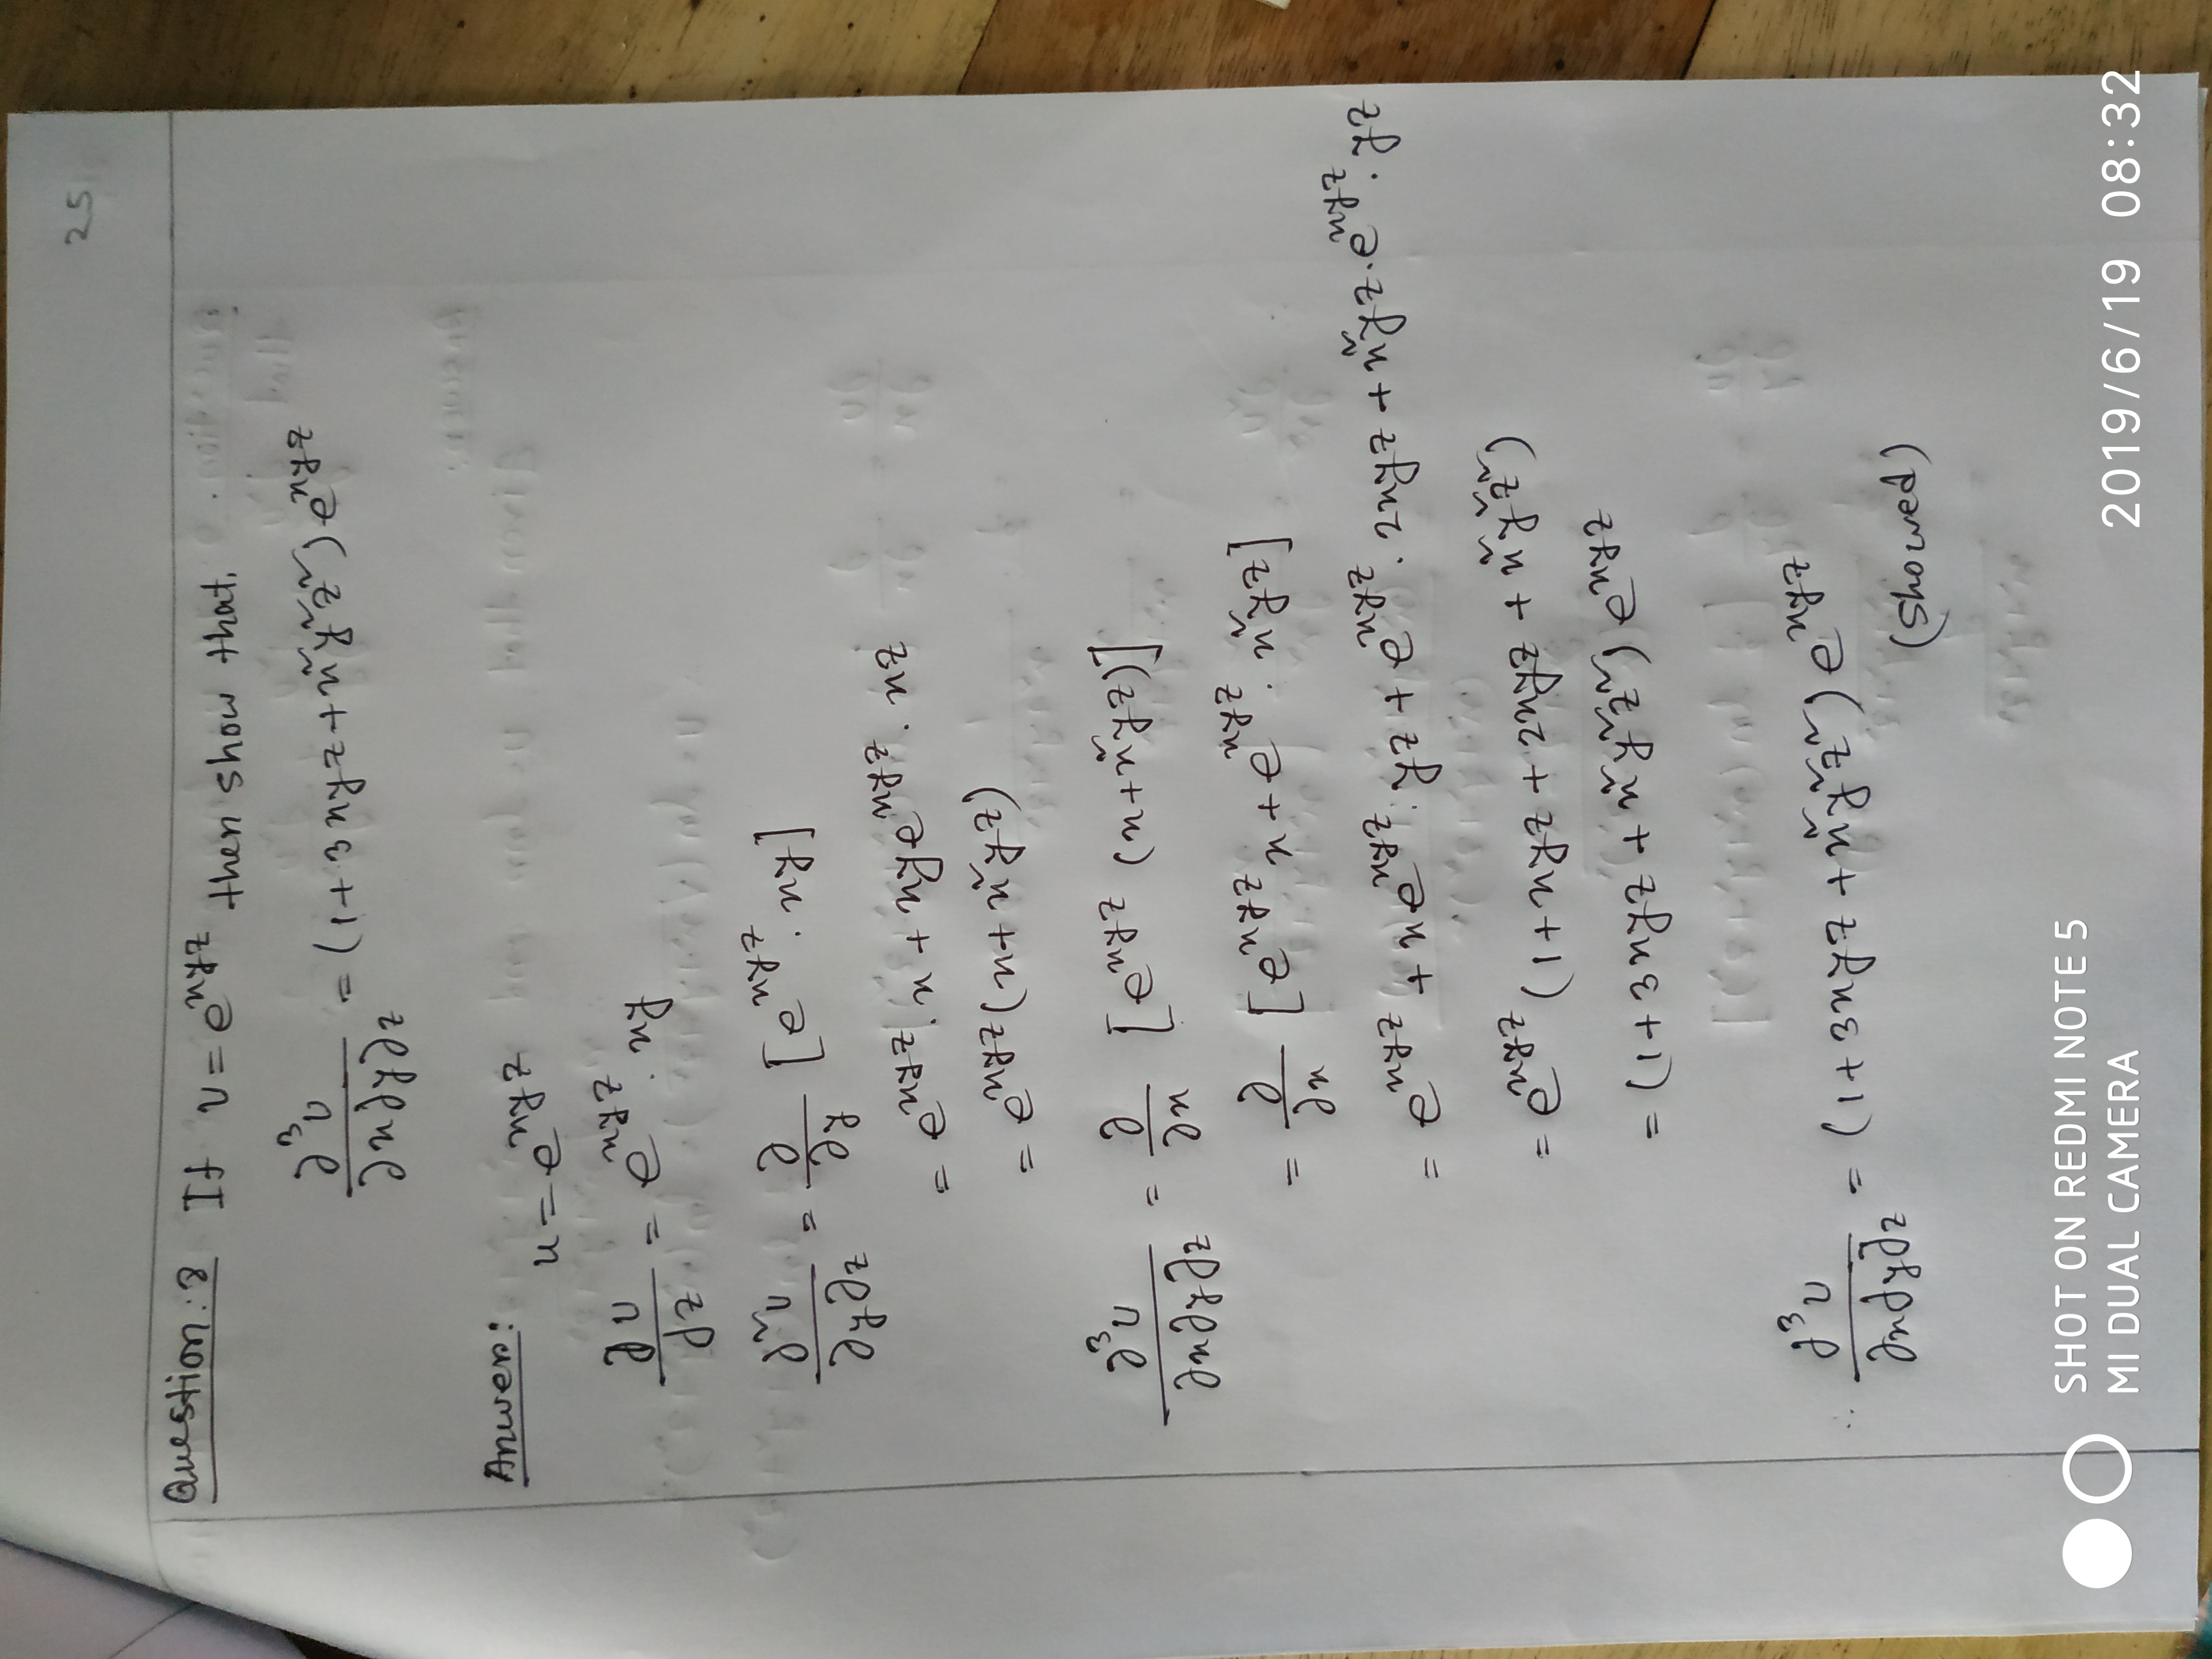 25
Question: 8 If u = e^{xyz} then show that,
∂³u/∂x∂y∂z = (1 + 3xyz + x²y²z²) e^{xyz}
Anwer:
u = e^{xyz}
∂u/∂z = e^{xyz} . xy
∂²u/∂y∂z = ∂/∂y [e^{xyz} . xy]
= e^{xyz} . x + xye^{xyz} . xz
= e^{xyz} (x + x²yz)
∂³u/∂x∂y∂z = ∂/∂x [e^{xyz} (x + x²yz)]
= ∂/∂x [e^{xyz} x + e^{xyz} . x²yz]
= e^{xyz} + xe^{xyz} . yz + e^{xyz} . 2xyz + x²yz . e^{xyz} . yz
= e^{xyz} (1 + xyz + 2xyz + x²y²z²)
= (1 + 3xyz + x²y²z²) e^{xyz}
∴ ∂³u/∂x∂y∂z = (1 + 3xyz + x²y²z²) e^{xyz}
(Showed)
SHOT ON REDMI NOTE 5
MI DUAL CAMERA
2019/6/19 08:32